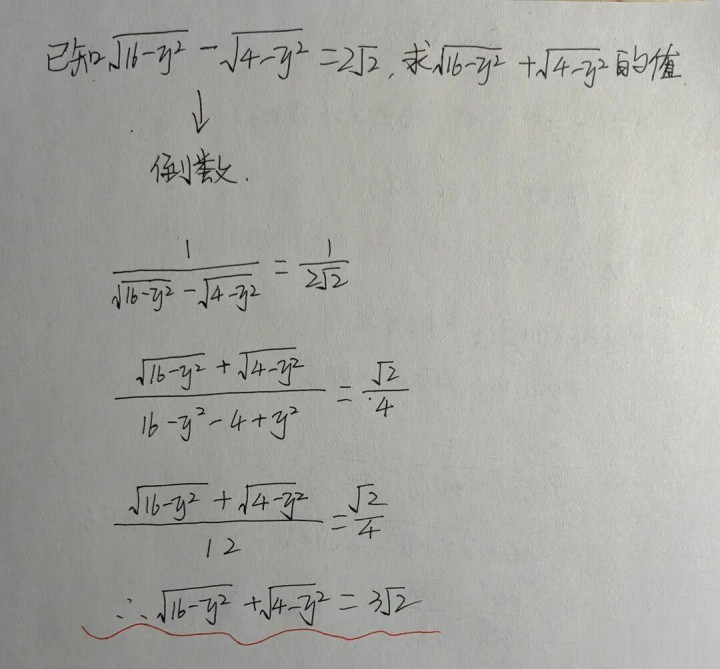 已知√(16-y²) - √(4-y²) = 2√2, 求√(16-y²) + √(4-y²) 的值
↓
倒数.
1/(√(16-y²) - √(4-y²)) = 1/(2√2)
(√(16-y²) + √(4-y²))/(16-y²-4+y²) = √2/4
(√(16-y²) + √(4-y²))/12 = √2/4
∴ √(16-y²) + √(4-y²) = 3√2